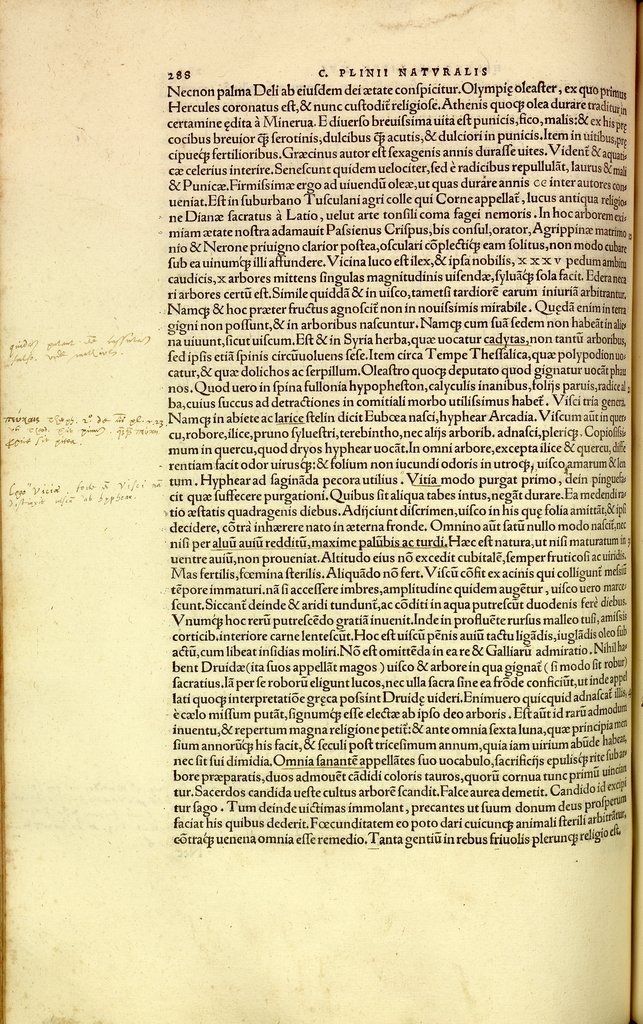 288 C. PLINII NATVRALIS
Necnon palma Deli ab eiusdem dei ætate conspicitur. Olympię oleaster, ex quo primus
Hercules coronatus est, & nunc custodiť religiose. Athenis quoqꝫ olea durare traditur in
certamine ędita à Minerua. E diuerso breuissima uita est punicis, fico, malis: & ex his prę
cocibus breuior ꝗ̃ serotinis, dulcibus ꝗ̃ acutis, & dulciori in punicis. Item in uitibus, prę
cipueqꝫ fertilioribus. Græcinus autor est sexagenis annis durasse uites. Videnť & aquati
cæ celerius interire. Senescunt quidem uelociter, sed è radicibus repullulāt, laurus & mali
& Punicæ. Firmissimæ ergo ad uiuendū oleæ, ut quas durare annis cc inter autores con
ueniat. Est in suburbano Tusculani agri colle qui Corne appellať, lucus antiqua religio
ne Dianæ sacratus à Latio, uelut arte tonsili coma fagei nemoris. In hoc arborem exi
miam ætate nostra adamauit Passienus Crispus, bis consul, orator, Agrippinæ matrimo
nio & Nerone priuigno clarior postea, osculari cōplectiqꝫ eam solitus, non modo cubare
sub ea uinumqꝫ illi affundere. Vicina luco est ilex, & ipsa nobilis, x x x v pedum ambitu
caudicis, x arbores mittens singulas magnitudinis uisendæ, syluāqꝫ sola facit. Edera neca
ri arbores certū est. Simile quiddā & in uisco, tametsi tardiorē earum iniuriā arbitrantur.
Namqꝫ & hoc præter fructus agnosciť non in nouissimis mirabile. Quędā enim in terra
gigni non possunt, & in arboribus nascuntur. Namqꝫ cum suā sedem non habeāt in alie
na uiuunt, sicut uiscum. Est & in Syria herba, quæ uocatur cadytas, non tantū arboribus,
sed ipsis etiā spinis circūuoluens sese. Item circa Tempe Thessalica, quæ polypodion uo
catur, & quæ dolichos ac serpillum. Oleastro quoqꝫ deputato quod gignatur uocāt phau
nos. Quod uero in spina fullonia hypopheston, calyculis inanibus, folijs paruis, radice al
ba, cuius succus ad detractiones in comitiali morbo utilissimus habeť. Visci tria genera.
Namqꝫ in abiete ac larice stelin dicit Eubœa nasci, hyphear Arcadia. Viscum aūt in quer
cu, robore, ilice, pruno syluestri, terebintho, nec alijs arborib. adnasci, pleriqꝫ. Copiosissi
mum in quercu, quod dryos hyphear uocāt. In omni arbore, excepta ilice & quercu, diffe
rentiam facit odor uirusqꝫ: & folium non iucundi odoris in utroqꝫ, uisco amarum & len
tum. Hyphear ad sagināda pecora utilius. Vitia modo purgat primo, dein pinguefa
cit quæ suffecere purgationi. Quibus sit aliqua tabes intus, negāt durare. Ea medendi ra
tio æstatis quadragenis diebus. Adijciunt discrimen, uisco in his quę folia amittāt, & ipsi
decidere, cōtrà inhærere nato in æterna fronde. Omnino aūt satū nullo modo nasciť, nec
nisi per aluū auiū redditū, maxime palūbis ac turdi. Hæc est natura, ut nisi maturatum in
uentre auiū, non proueniat. Altitudo eius nō excedit cubitalē, semper fruticosi ac uiridis.
Mas fertilis, fœmina sterilis. Aliquādo nō fert. Viscū cōfit ex acinis qui colligunť messiū
tēpore immaturi. nā si accessere imbres, amplitudine quidem augēťur, uisco uero marce
scunt. Siccanť deinde & aridi tunduntˀ, ac cōditi in aqua putrescūt duodenis ferè diebus.
Vnumqꝫ hoc rerū putrescēdo gratiā inuenit. Inde in profluēte rursus malleo tusi, amissis
corticib. interiore carne lentescūt. Hoc est uiscū pēnis auiū tactu ligādis, iuglādis oleo sub
actū, cum libeat insidias moliri. Nō est omittēda in ea re & Galliarū admiratio. Nihil ha
bent Druidæ (ita suos appellāt magos) uisco & arbore in qua gignať (si modo sit robur)
sacratius. Iā per se roborū eligunt lucos, nec ulla sacra sine ea frōde conficiūt, ut inde appel
lati quoqꝫ interpretatiōe gręca possint Druidę uideri. Enimuero quicquid adnascať illis,
è cælo missum putāt, signumqꝫ esse electæ ab ipso deo arboris. Est aūt id rarū admodum
inuentu, & repertum magna religione petiť: & ante omnia sexta luna, quæ principia men
sium annorūqꝫ his facit, & seculi post tricesimum annum, quia iam uirium abūde habeat,
nec sit sui dimidia. Omnia sanantē appellātes suo uocabulo, sacrificijs epulisqꝫ rite sub ar
bore præparatis, duos admouēt cādidi coloris tauros, quorū cornua tunc primū uincian
tur. Sacerdos candida ueste cultus arborē scandit. Falce aurea demetit. Candido id excipi
tur sago. Tum deinde uictimas immolant, precantes ut suum donum deus prosperum
faciat his quibus dederit. Fœcunditatem eo poto dari cuicunqꝫ animali sterili arbitratur,
cōtraqꝫ uenena omnia esse remedio. Tanta gentiū in rebus friuolis plerunqꝫ religio est.